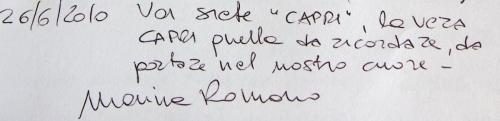 26/6/2010 Voi siete "CAPRI", la vera
CAPRI quella da ricordare, da
portare nel nostro cuore -
Marina Romano